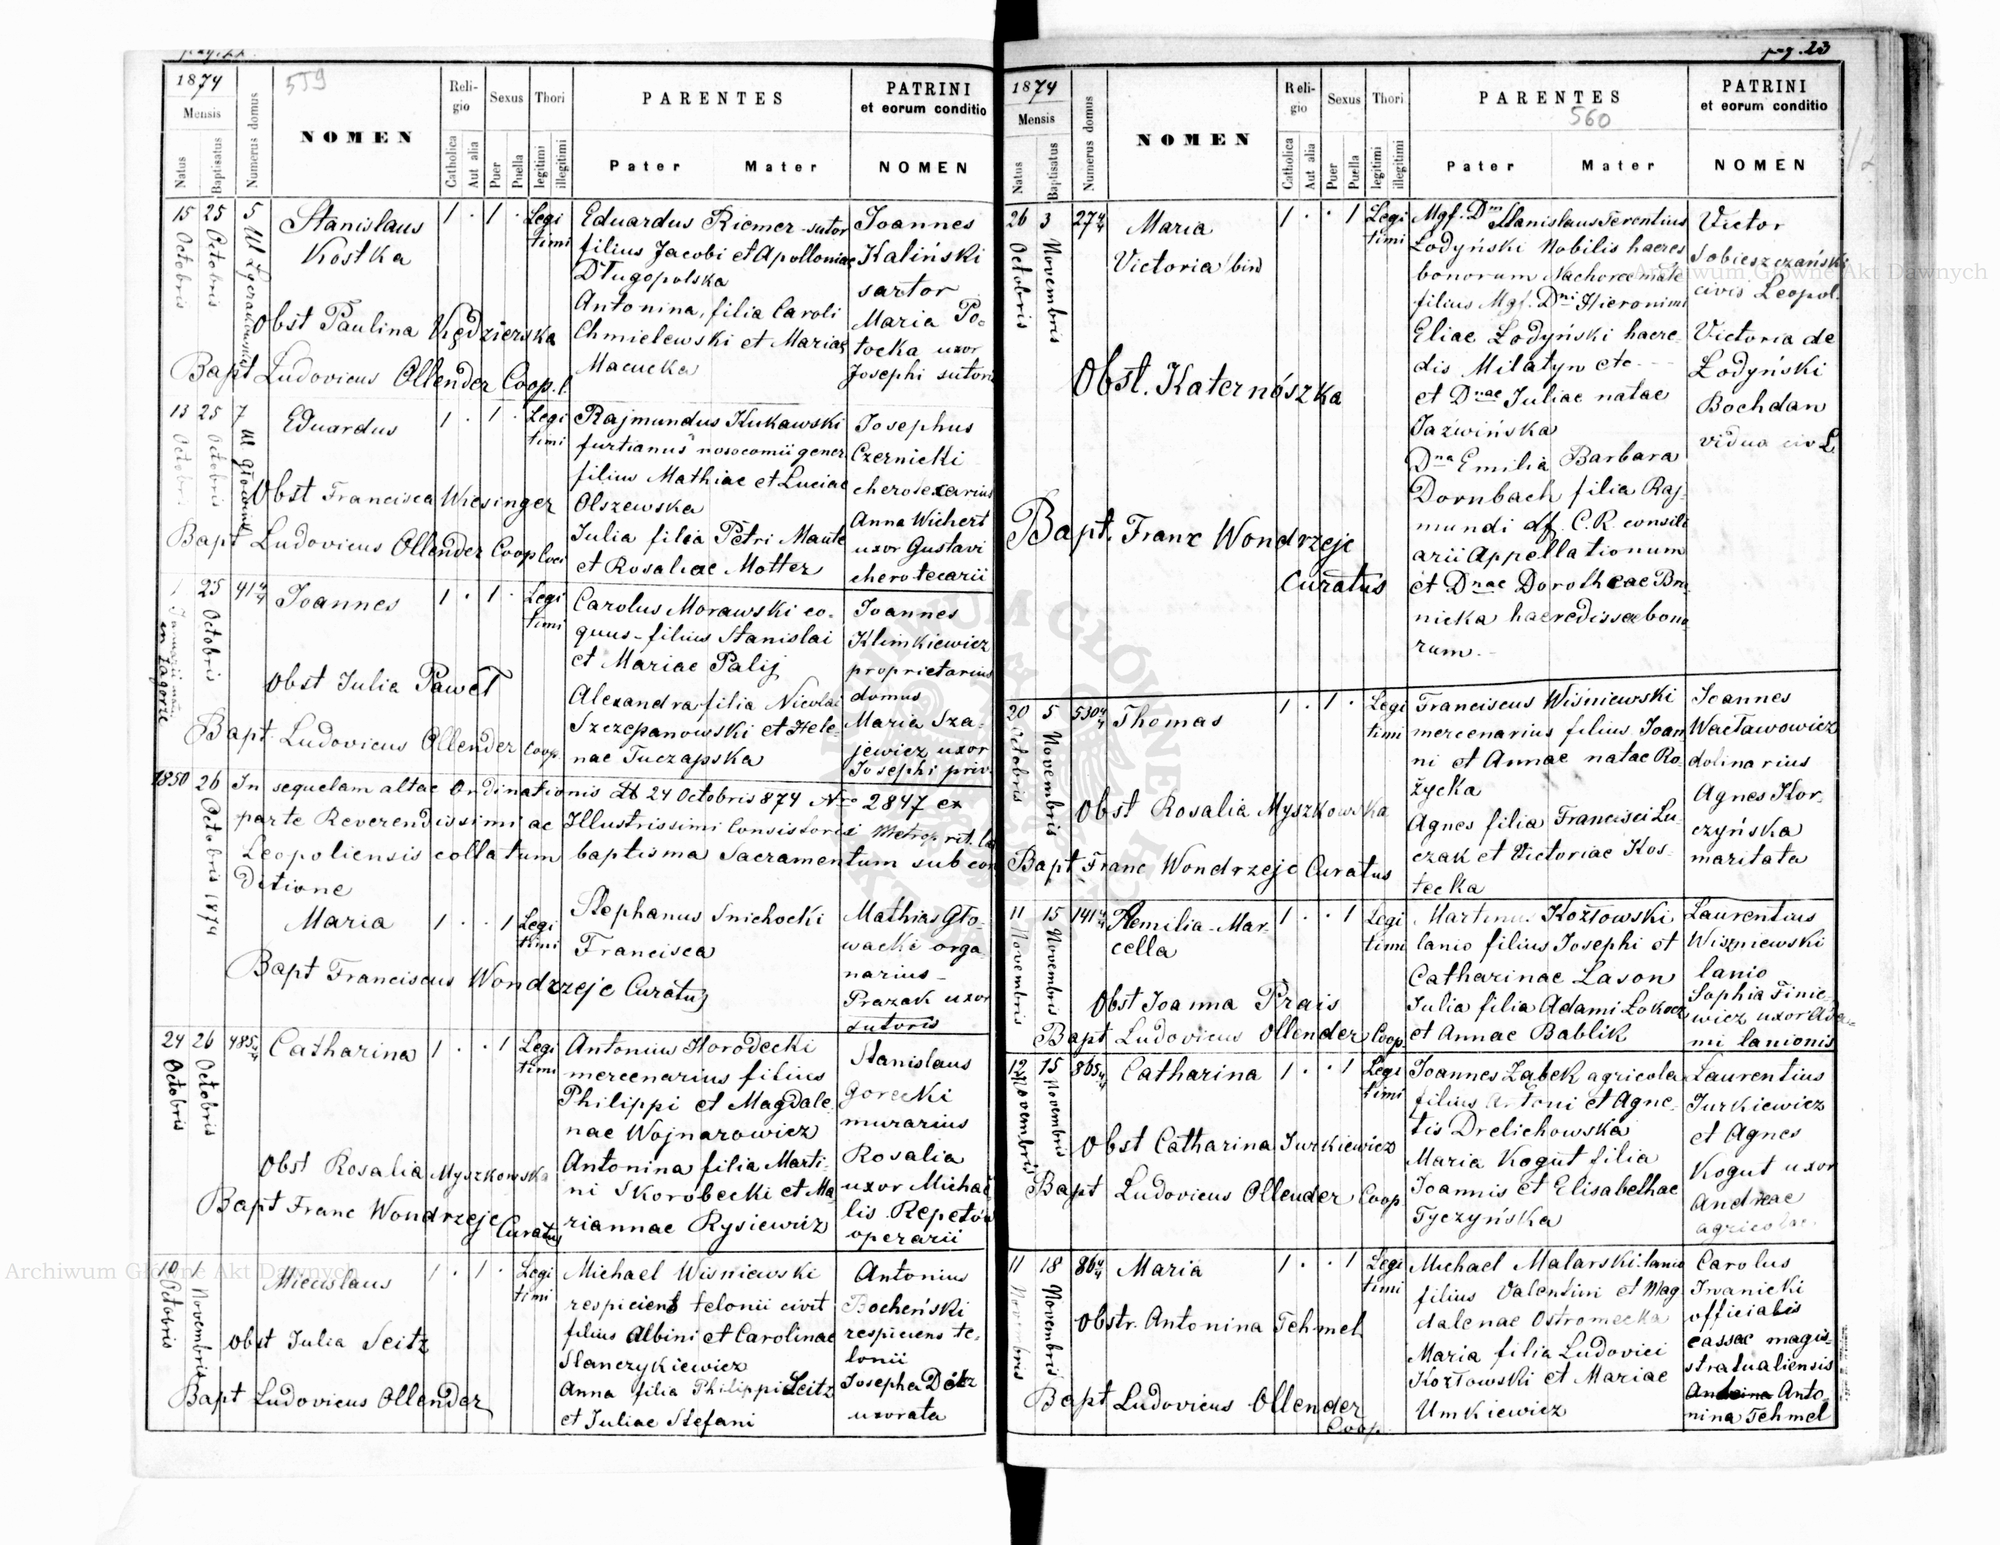 pag. 22
1874
559
Mensis
Natus
Baptisatus
Numerus domus
NOMEN
Religio
Catholica
Aut alia
Sexus
Puer
Puella
Thori
legitimi
illegitimi
PARENTES
Pater Mater
PATRINI
et eorum conditio
NOMEN
15 Octobris
25 Octobris
5
Stanislaus
Kostka
1 . 1 .
Legi
timi
Obst Paulina Kędzierska
Bapt Ludovicus Ollender Coop. l.
Eduardus Riemer sutor
filius Jacobi et Apolloniae
Długopolska
Antonina, filia Caroli
Chmielewski et Mariae
Macucka
Joannes
Kaliński
sartor
Maria Po-
tocka uxor
Josephi sutoris
13 Octobris
25 Octobris
7
Eduardus
1 . 1 .
Legi
timi
Obst Francisca Wiesinger
Bapt Ludovicus Ollender Coop loci
Rajmundus Kukawski
furtianus nosocomii gener
filius Mathiae et Luciae
Olszewska
Julia filia Petri Maute
et Rosaliae Motter
Josephus
Czernicki
cherotecarius
Anna Wichert
uxor Gustavi
cherotecarii
1 Januarii
in Zagorze
25 Octobris
41 4/4
Joannes
1 . 1 .
Legi
timi
Obst Julia Paweł
Bapt Ludovicus Ollender Coop.
Carolus Morawski co-
quus filius Stanislai
et Mariae Palij
Alexandra filia Nicolai
Szczepanowski et Hele-
nae Tuczapska
Joannes
Klimkiewicz
proprietarius
domus
Maria Sza-
jewicz uxor
Josephi priv.
1850
26 Octobris 1874
In sequelam altae Ordinationis dt 24 Octobris 874 Nro 2847 ex
parte Reverendissimi ac Illustrissimi Consistorii Metrop. rit. lat
Leopoliensis collatum baptisma Sacramentum sub con
ditione
Maria
1 . . 1
Legi
timi
Bapt Franciscus Wondrzejc Curatus
Stephanus Snichocki
Francisca
Mathias Gło-
wacki orga-
narius
Prazak uxor
sutoris
24 Octobris
26 Octobris
485 4/4
Catharina
1 . . 1
Legi
timi
Obst Rosalia Myszkowska
Bapt Franc Wondrzejc
Curatus
Antonius Horodecki
mercenarius filius
Philippi et Magdale-
nae Wojnarowicz
Antonina filia Marti-
ni Skorobecki et Ma
riannae Rysiewicz
Stanislaus
Gorecki
murarius
Rosalia
uxor Michae
lis Repetów
operarii
10 Octobris
1 Novembris
Miecislaus
1 . 1 .
Legi
timi
Obst Julia Seitz
Bapt Ludovicus Ollender
Michael Wisniewski
respicient telonii civit
filius Albini et Carolinae
Stanczykiewicz
Anna filia Philippi Seitz
et Juliae Stefani
Antonius
Bocheński
respiciens te-
lonii
Josepha
uxorata
pag. 23
1874
Mensis
Natus
Baptisatus
Numerus domus
NOMEN
Religio
Catholica
Aut alia
Sexus
Puer
Puella
Thori
legitimi
illegitimi
PARENTES
560
Pater Mater
PATRINI
et eorum conditio
NOMEN
26 Octobris
3 Novembris
27 4/4
Maria
Victoria bin
1 . . 1
Legi
timi
Obst. Katernószka
Bapt. Franc Wondrzejc
Curatus
Mgf. Dm Stanislaus Terentius
Łodyński Nobilis haeres
bonorum Nachorce małe
filius Mgf. Dni Hieronimi
Eliae Łodyński haere-
dis Milatyn etc.
et Dnae Juliae natae
Jazwińska
Dna Emilia Barbara
Dornbach filia Raj-
mundi df. C.R. consili
arii Appellationum
et Dnae Dorotheae Bru-
nicka haeredissae bono-
rum.
Victor
Sobieszczański
civis Leopol.
Victoria de
Łodyński
Bochdan
vidua civ L.
20 Octobris
5 Novembris
530 4/4
Thomas
1 . 1 .
Legi
timi
Obst Rosalia Myszkowska
Bapt Franc Wondrzejc Curatus
Franciscus Wiśniewski
mercenarius filius Joan
ni et Annae natae Ro-
życka
Agnes filia Francisci Lu-
czak et Victoriae Kos-
tecka
Joannes
Wacławowicz
dolinarius
Agnes Kor-
czyńska
maritata
11 Novembris
15 Novembris
141 4/4
Aemilia Mar-
cella
1 . . 1
Legi
timi
Obst Joanna Prais
Bapt Ludovicus Ollender Coop.
Martinus Kozłowski
lanio filius Josephi et
Catharinae Lason
Julia filia Adami Łokocz
et Annae Bablik
Laurentius
Wiszniewski
lanio
Sophia Finie-
wicz uxor Ada-
mi lanionis
12 Novembris
15 Novembris
865 4/4
Catharina
1 . . 1
Legi
timi
Obst Catharina Jurkiewicz
Bapt Ludovicus Ollender Coop.
Joannes Ząbek agricola
filius Antoni et Agne-
tis Drelichowska
Maria Kogut filia
Joannis et Elisabethae
Tyczyńska
Laurentius
Jurkiewicz
et Agnes
Kogut uxor
Andreae
agricolae
11 Novembris
18 Novembris
86 4/4
Maria
1 . . 1
Legi
timi
Obstr. Antonina Tehmel
Bapt Ludovicus Ollender
Coop.
Michael Malarski lanio
filius Valentini et Mag
dalenae Ostromecka
Maria filia Ludovici
Kozłowski et Mariae
Umkiewicz
Carolus
Iwanicki
officialis
cassae magis-
stratualiensis
Anto-
nina Tehmel
Archiwum Główne Akt Dawnych
Archiwum Główne Akt Dawnych